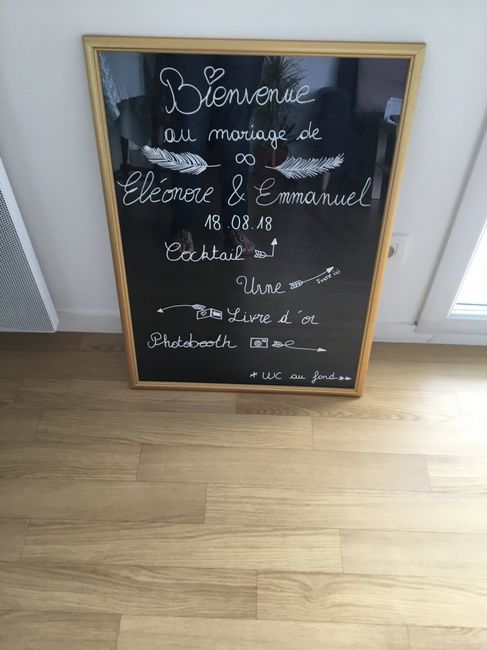 Bienvenue
au mariage de
∞
Eléonore & Emmanuel
18.08.18
Cocktail
Urne
Juste ici
Livre d'or
Photobooth
+ WC au fond